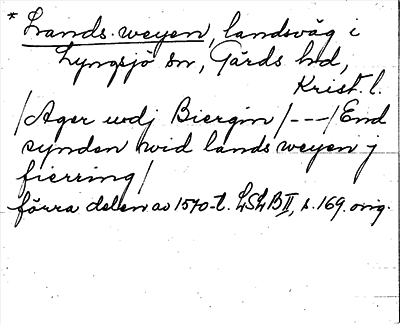 * Lands weyen, landsväg i
Lyngsjö sn, Gärds hd,
Krist. l.
/Ager udj Biergin/---/End
synden wid lands weyen j
fierring/
förra delen av 1570-t. LSLB II, s. 169. orig.